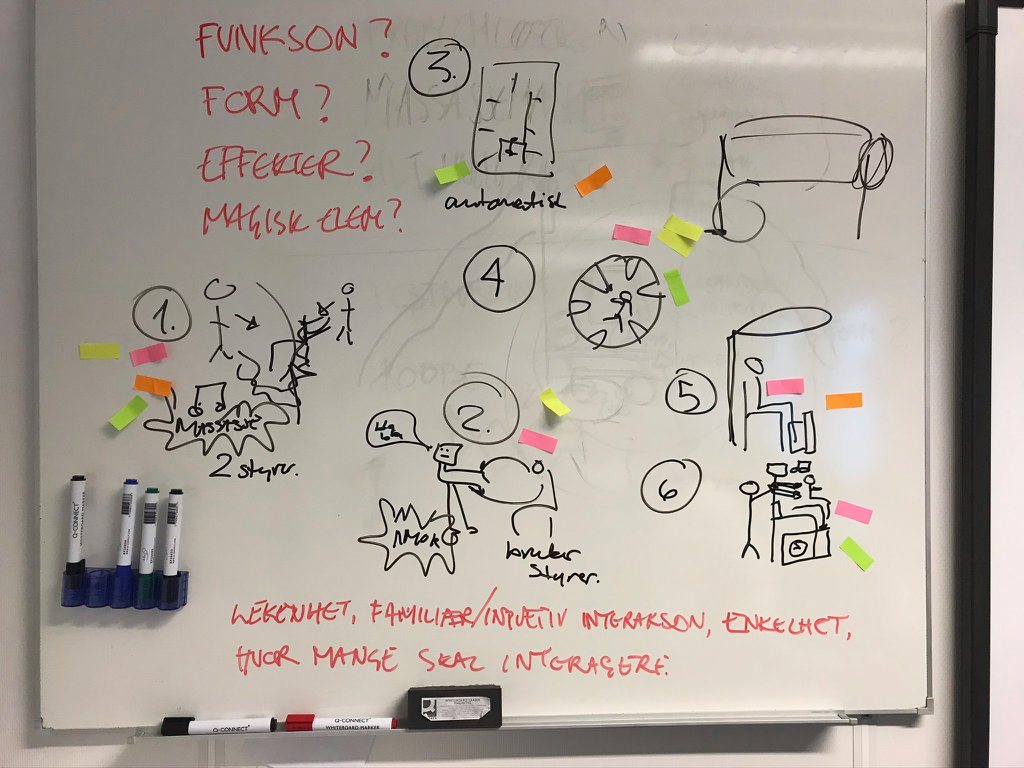 FUNKSON?
FORM?
EFFEKTER?
MAGISK ELEM?
3.
automatisk
4
1.
2 styrer.
2.
HA
HA
bruker
styrer.
5
6
LEKENHET, FAMILIÆR/INTUETIV INTERAKSON, ENKELHET,
HVOR MANGE SKAL INTERAGERE.
Q-CONNECT
Q-CONNECT
Q-CONNECT
WHITEBOARD MARKER